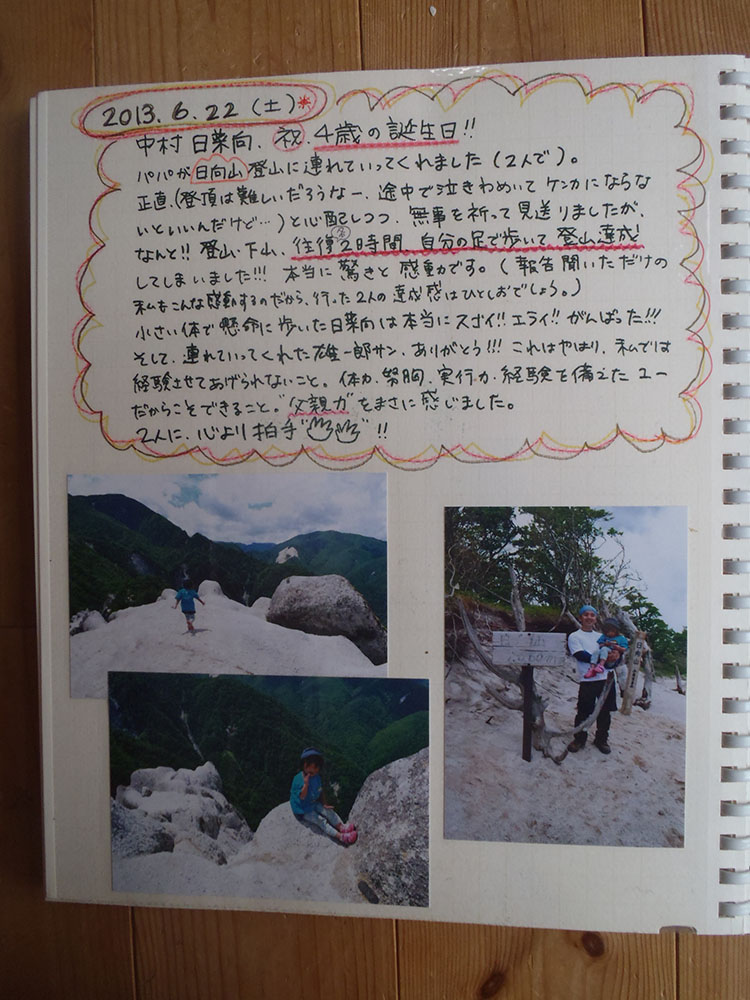 2013.6.22(土)*
中村 日菜向、祝 4歳の誕生日!!
パパが日向山登山に連れていってくれました(2人で)。
正直、(登頂は難しいだろうなー、途中で泣きわめいてケンカにならな
いといいんだけど…)と心配しつつ、無事を祈って見送りましたが、
なんと!! 登山、下山、往復 各2時間、自分の足で歩いて登山達成!
してしまいました!!! 本当に驚きと感動です。(報告聞いただけの
私もこんな感動するのだから、行った2人の達成感はひとしおでしょう。)
小さい体で懸命に歩いた日菜向は本当にスゴイ!! エライ!! がんばった!!!
そして、連れていってくれた雄一郎サン、ありがとう!!! これはやはり、私では
経験させてあげられないこと。体力、度胸、実行力、経験を備えたユー
だからこそできること。“父親力”をまさに感じました。
2人に、心より拍手 !!
日向山